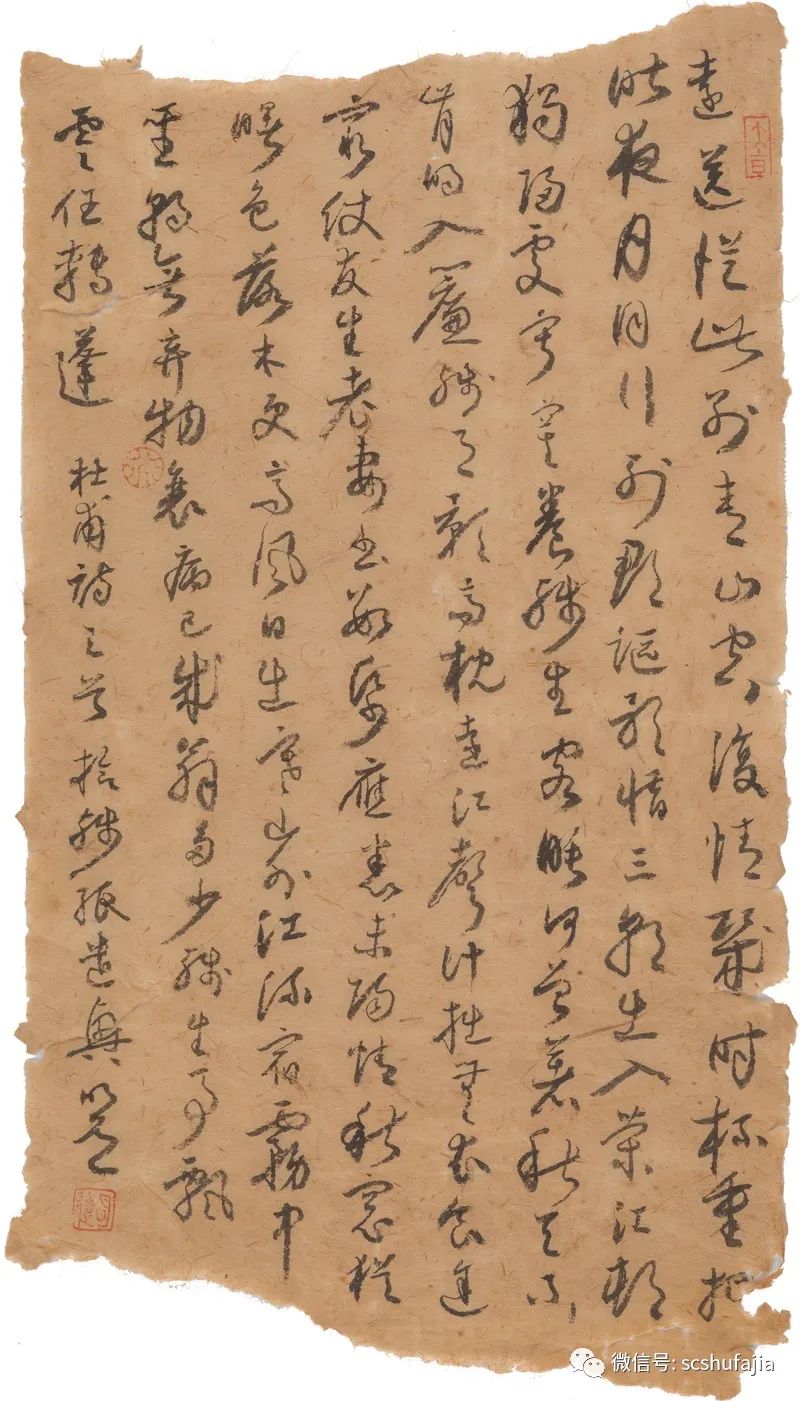 遠送從此別青山空復情幾時杯重把
昨夜月同行列郡謳歌惜三朝出入榮江村
獨歸處寂寞養殘生客睡何曾著秋天不
肯明入簾殘月影高枕遠江聲計拙無衣食途
窮仗友生老妻書數紙應悉未歸情秋窗猶
曙色落木更高風日出寒山外江流宿霧中
聖朝無棄物衰病已成翁多少殘生事飄
零任轉蓬 杜甫詩三首 拾殘紙遣興
微信号: scshufajia